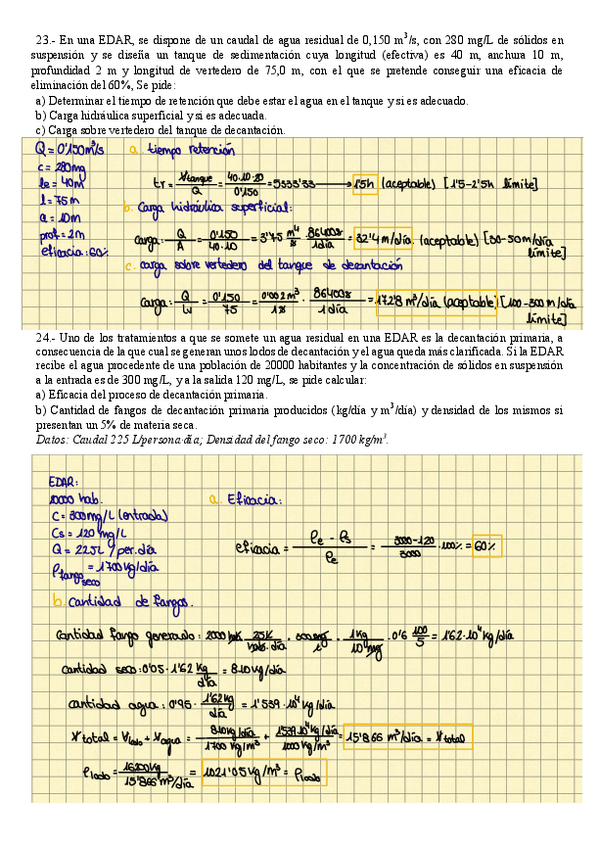 23.- En una EDAR, se dispone de un caudal de agua residual de 0,150 m³/s, con 280 mg/L de sólidos en
suspensión y se diseña un tanque de sedimentación cuya longitud (efectiva) es 40 m, anchura 10 m,
profundidad 2 m y longitud de vertedero de 75,0 m, con el que se pretende conseguir una eficacia de
eliminación del 60%, Se pide:
a) Determinar el tiempo de retención que debe estar el agua en el tanque y si es adecuado.
b) Carga hidráulica superficial y si es adecuada.
c) Carga sobre vertedero del tanque de decantación.
Q = 0'150 m³/s
c = 280mg
le = 40m
l = 75m
a = 10m
prof = 2m
eficacia: 60%
a. tiempo retención
tr = Vtanque / Q = 40·10·20 / 0'150 = 5333'33 → 1'5h (aceptable) [1'5-2'5h límite]
b. Carga hidráulica superficial:
carga: Q / A = 0'150 / 40·10 = 3'75 m⁴ / s · 86400s / 1día = 32'4 m/día. (aceptable) [30-50m/día
límite]
c. carga sobre vertedero del tanque de decantación
Carga: Q / Lv = 0'150 / 75 = 0'002m³ / 1s · 86400s / 1día = 172'8 m³/día (aceptable) [100-300 m/día
límite]
24.- Uno de los tratamientos a que se somete un agua residual en una EDAR es la decantación primaria, a
consecuencia de la que cual se generan unos lodos de decantación y el agua queda más clarificada. Si la EDAR
recibe el agua procedente de una población de 20000 habitantes y la concentración de sólidos en suspensión
a la entrada es de 300 mg/L, y a la salida 120 mg/L, se pide calcular:
a) Eficacia del proceso de decantación primaria.
b) Cantidad de fangos de decantación primaria producidos (kg/día y m³/día) y densidad de los mismos si
presentan un 5% de materia seca.
Datos: Caudal 225 L/persona·día; Densidad del fango seco: 1700 kg/m³.
EDAR:
hab.
C = 300mg/L (entrada)
Cs = 120 mg/L
Q = 225L / per.día
ρfango seco = 1700 kg/día
a. Eficacia:
eficacia = ρe - ρs / ρe = 3000-120 / 3000 · 100% = 60%
b. Cantidad de fangos.
Cantidad fango generado: · 0'6 100 / 5 = 1'62·10⁴ kg/día
cantidad seco: 0'05 · 1'62 kg / día = 810 kg/día
cantidad agua: 0'95 · 1'62 kg / día = 1'539·10⁴ kg/día
V total = Vlodo + Vagua = 810 kg/día / 1700 kg/m³ + 1'539·10⁴ kg/día / 1000 kg/m³ = 15'866 m³/día = V total
ρlodo = 16200kg / 15'866 m³/día = 1021'05 kg/m³ = ρlodo